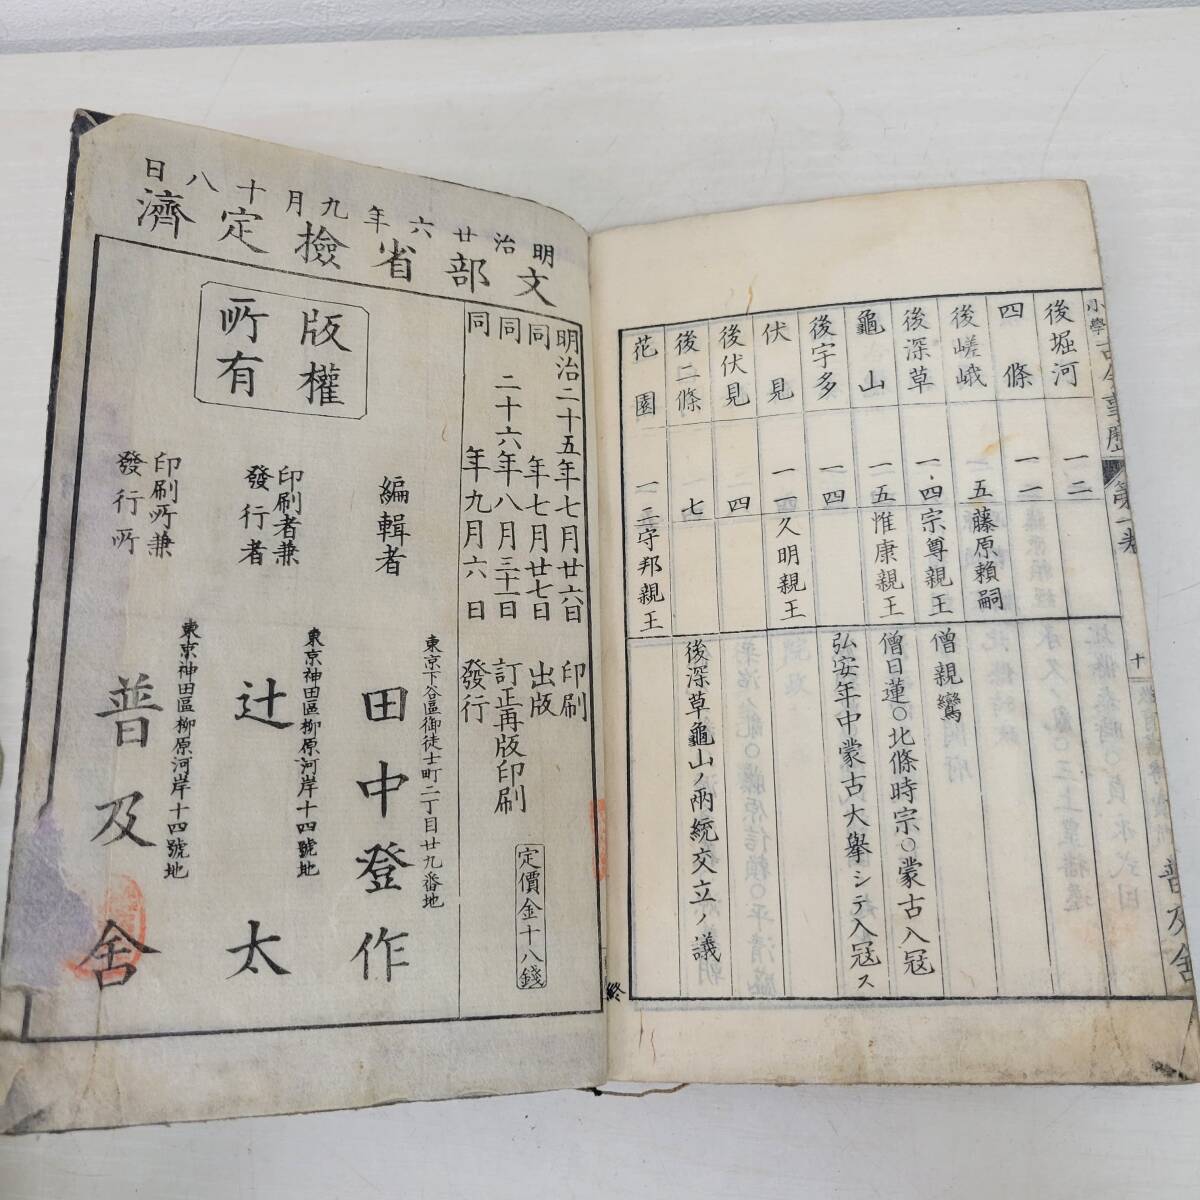 小學古今事歷 第一卷 十一 普及舍
後堀河 一二
四條 一一
後嵯峨 一五 藤原頼嗣
後深草 一四 宗尊親王 僧親鸞
龜山 一五 惟康親王 僧日蓮○北條時宗○蒙古入冦
後宇多 一四 弘安年中蒙古大擧シテ入冦ス
伏見 一一 久明親王
後伏見 四
後二條 七 後深草龜山ノ兩統交立ノ議
花園 一二 守邦親王
終
明治廿六年九月十八日
文部省檢定濟
明治二十五年七月廿六日 印刷
同 年七月廿七日 出版
同 二十六年八月三十一日 訂正再版印刷
同 年九月六日 發行
定價金十八錢
版權
所有
東京下谷區御徒士町二丁目廿九番地
編輯者 田中登作
東京神田區柳原河岸十四號地
印刷者兼
發行者 辻太
東京神田區柳原河岸十四號地
印刷所兼
發行所 普及舍